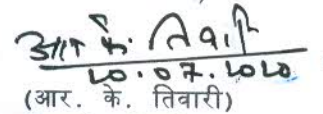 आर के. तिवारी
20.07.2020
(आर. के. तिवारी)